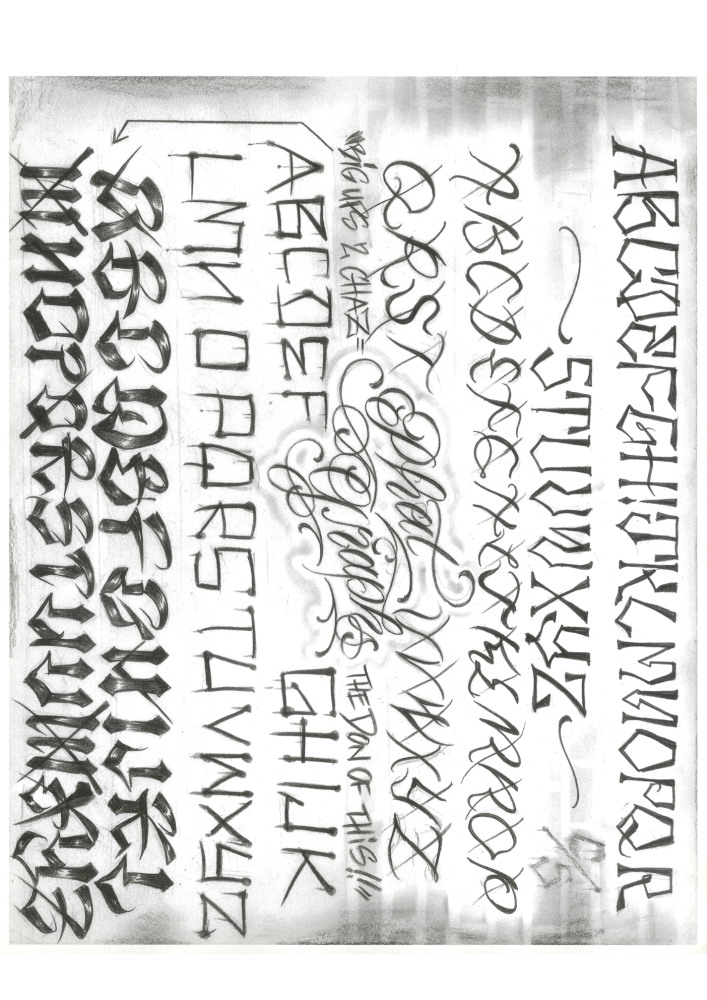 ABCDEFGHIJKLMNOPQR
STUVWXYZ
ABCDEFGHIJKLMNOPQ
QRST
UVWXYZ
Phat
Graphs
"BIG UPS 2 CHAZ=
THE DON OF THIS!!"
ABCDEF
GHIJK
LMNOPQRSTUVWXYZ
ABCDEFGHIJKL
MNOPQRSTUVWXYZ